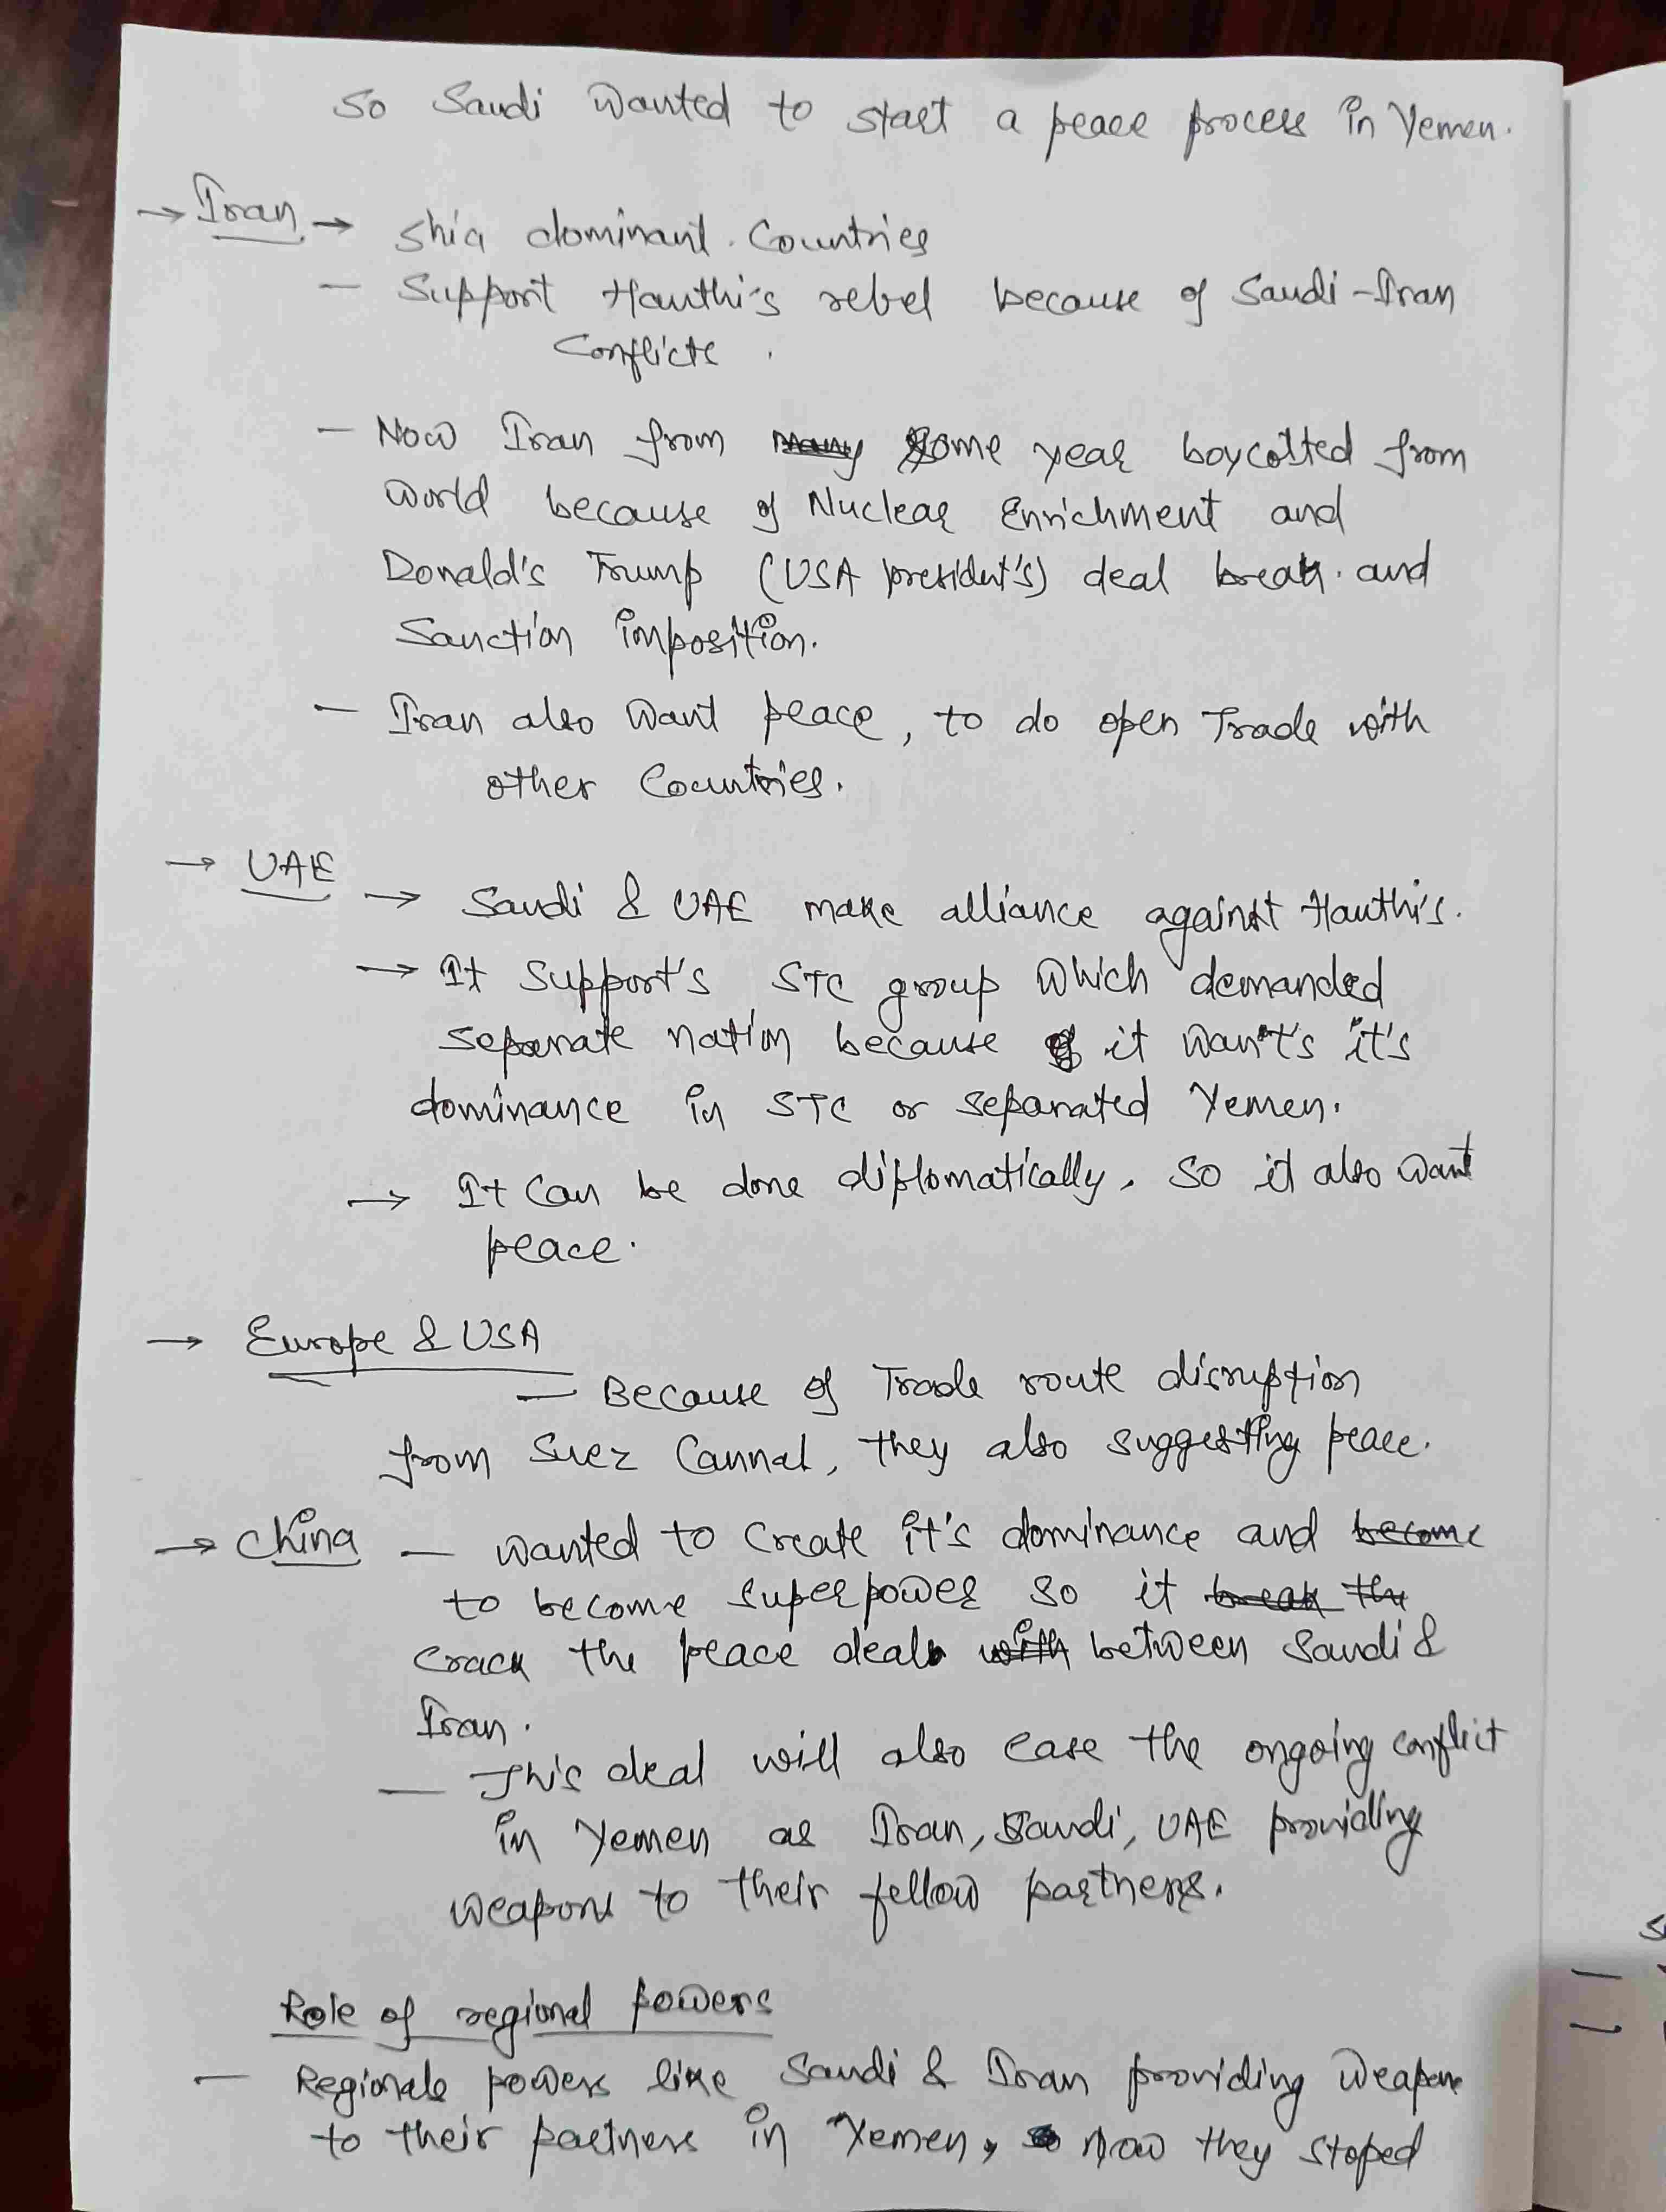 So Saudi wanted to start a peace process in Yemen.
→ Iran → Shia dominant Countries
— Support Hauthi's rebel because of Saudi-Iran
Conflicts.
— Now Iran from many some year boycotted from
world because of Nuclear Enrichment and
Donald's Trump (USA president's) deal break and
Sanction imposition.
— Iran also want peace, to do open Trade with
other Countries.
→ UAE → Saudi & UAE make alliance against Hauthi's.
→ It Support's STC group which demanded
separate nation because it want's it's
dominance in STC or separated Yemen.
→ It can be done diplomatically. So it also want
peace.
→ Europe & USA
— Because of Trade route disruption
from Suez Cannal, they also suggesting peace.
→ China — wanted to create it's dominance and become
to become superpower so it break the
crack the peace deal with between Saudi &
Iran.
— This deal will also ease the ongoing conflict
in Yemen as Iran, Saudi, UAE providing
weapons to their fellow partners.
Role of regional powers
— Regionals powers like Saudi & Iran providing weapons
to their partners in Yemen, now they stoped